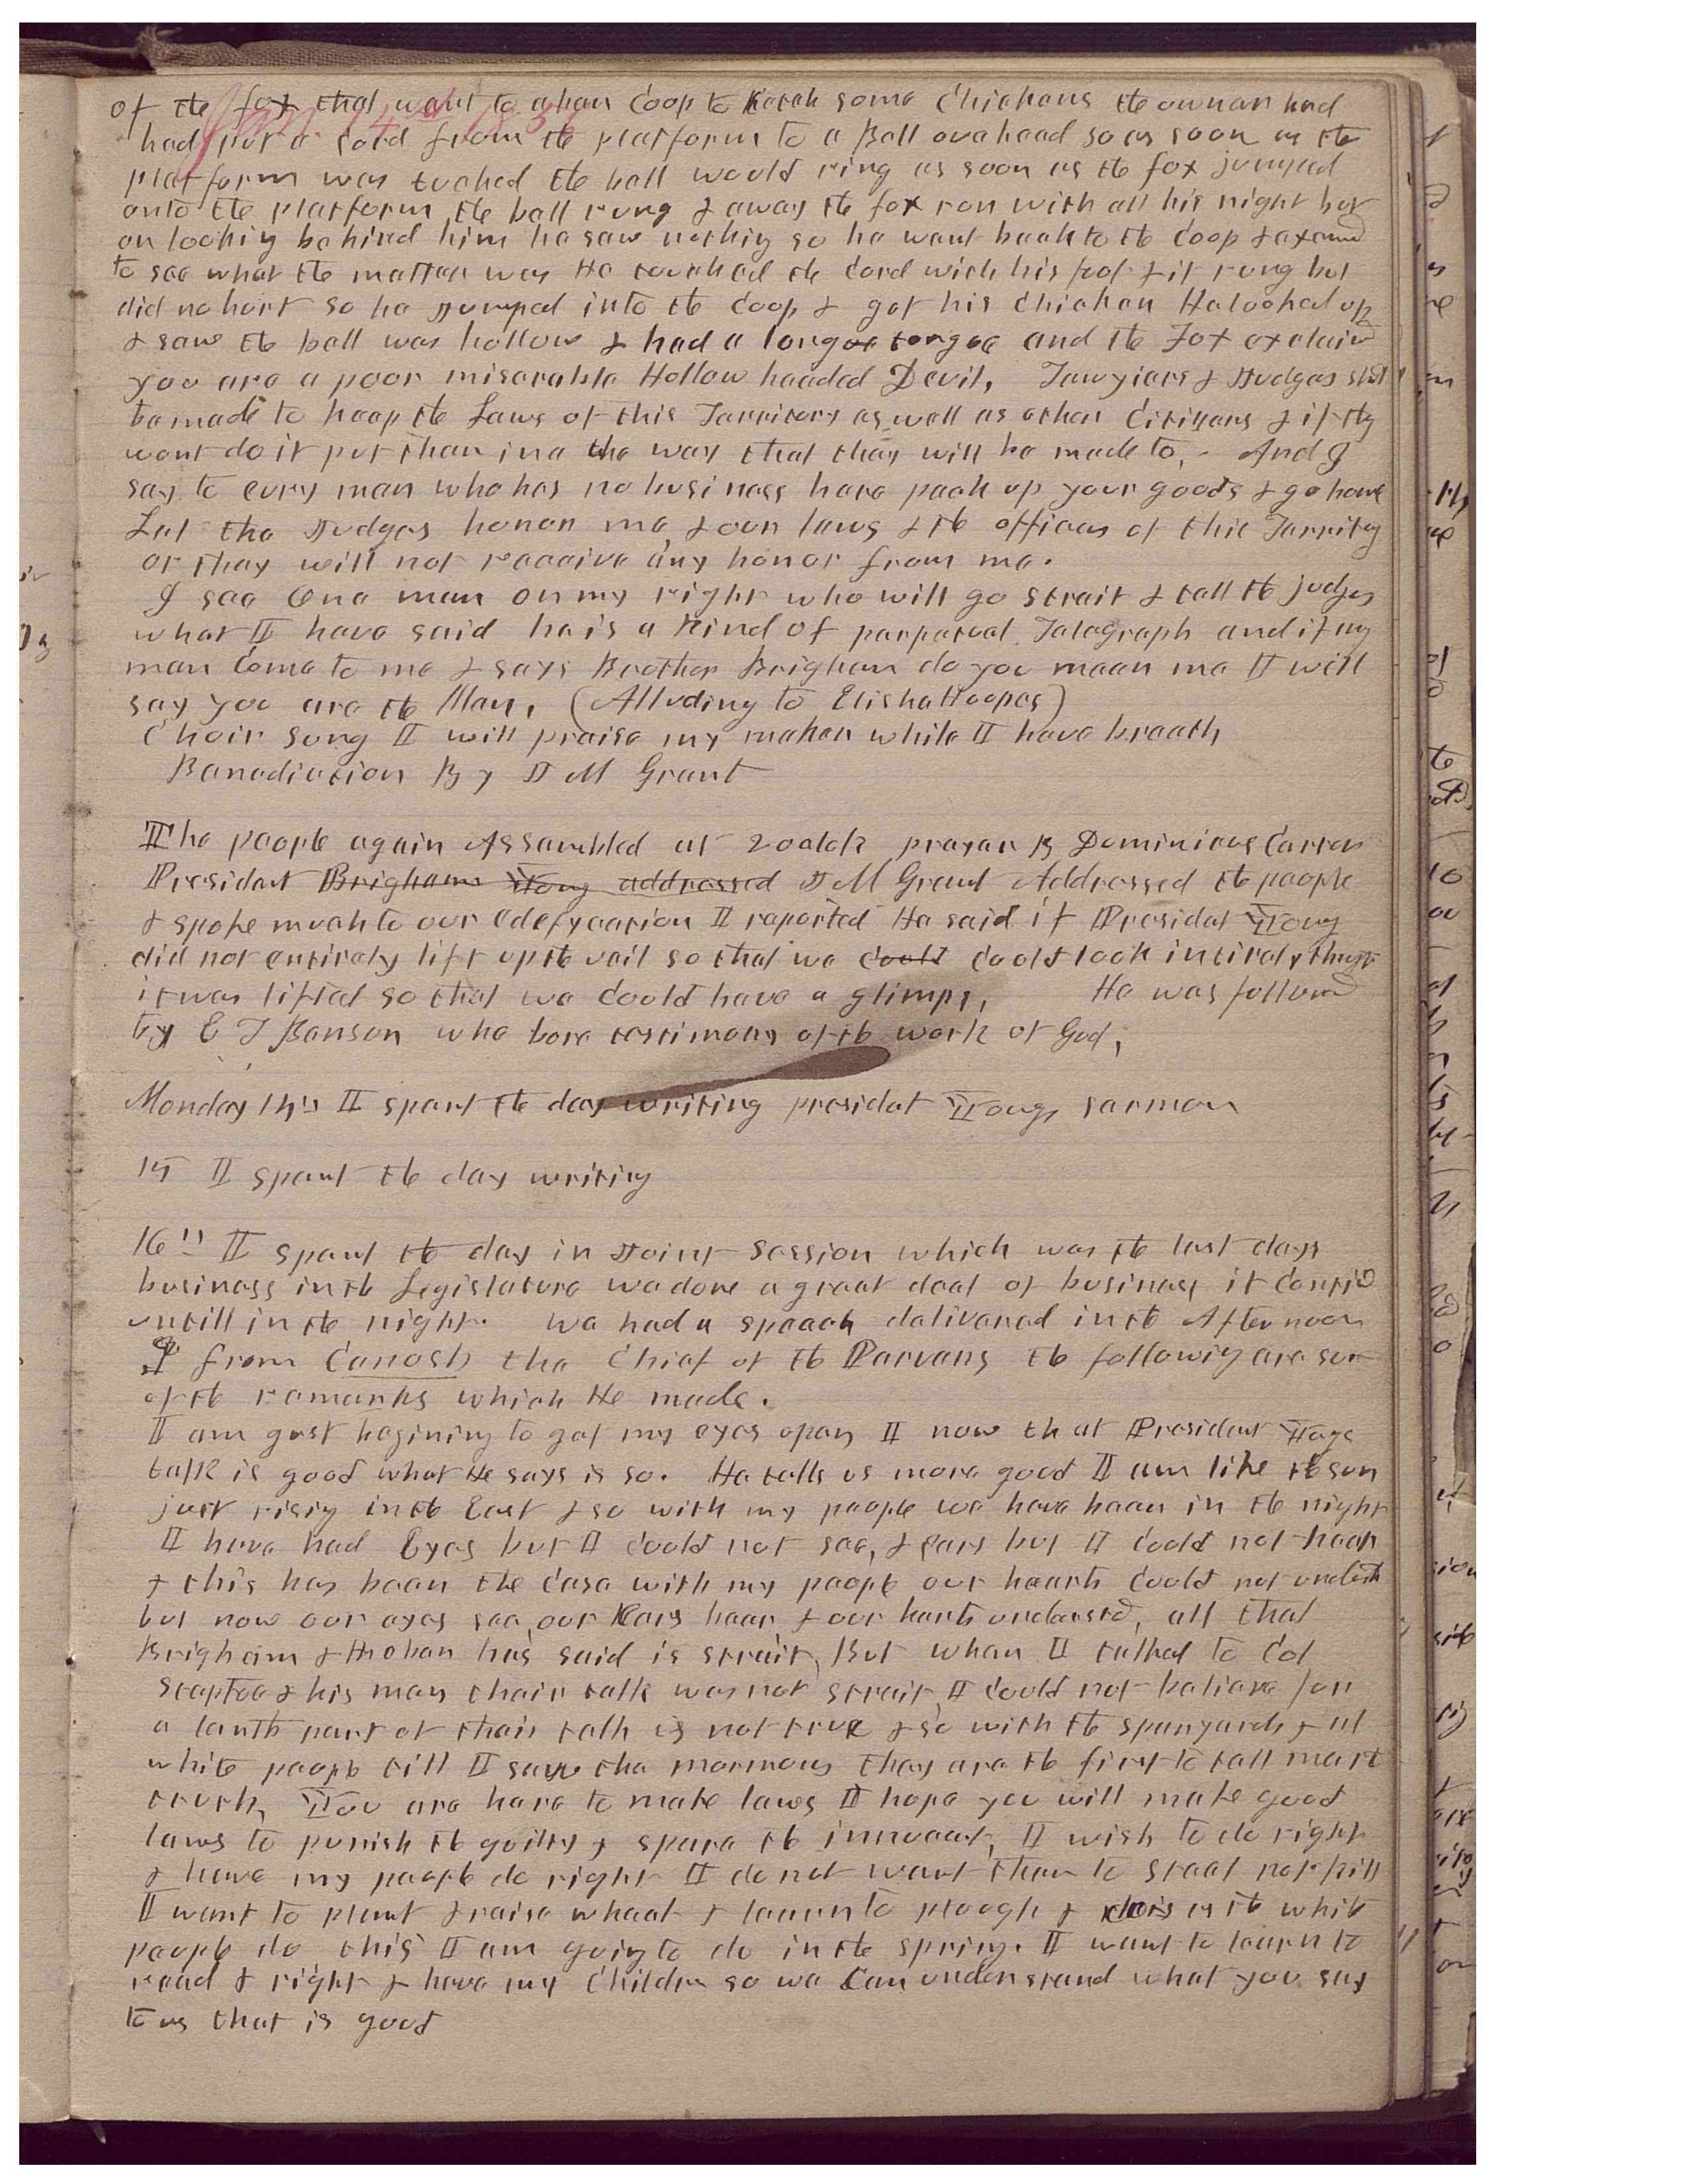 of the fox that want to a hen Coop to Katch some Chickens the owner had
had put a Cord from the platform to a Bell ovahead so as soon as the
platform was tuched the bell would ring as soon as the fox jumped
onto the platform the bell rung & away the fox ran with all his might but
on looking behind him he saw nothing so he went back to the Coop & examd
to see what the matter was He touched the Cord with his foot & it rung but
did no hort so he Jumped into the Coop & got his Chicken He looked up
& saw the bell was hollow & had a longue tongue and the Fox exclaimd
you are a poor miserable Hollow headed Devil, Lawyiers & Judges shd
be made to keep the Laws of this Territory as well as other Citizens & if they
wont do it put them in a the way that they will be made to, - And I
say to evry man who has no business here pack up your goods & go home
Let the Judges honor me, & our laws & the officers of this Territory
or they will not receive any honor from me.
I see One man on my right who will go strait & tell the judges
what I have said he is a Kind of perpetual Telegraph and if any
man Come to me & says Brother Brigham do you mean me I will
say you are the Man, (Alluding to Elisha Hoopes)
Choir Song I will praise my maker while I have breath
Benediction By J M Grant
The people again Assembled at 2 oclok prayer By Dominicus Carter
President Brigham Young addressed J M Grant Addressed the people
& spoke much to our edefycation I reported He said if President Young
did not entirely lift up the veil so that we Could Could look intirely through
it was lifted so that we Could have a glimps, He was followed
by E T Benson who bore testimony of the work of God,
Monday 14th I spent the day writing president Youngs sermon
15 I spent the day writing
16th I spent the day in Joint Session which was the last days
business in the Legislature we done a great deal of business it Contid
untill in the night. we had a speeach delivered in the Afternoon
from Canosh the Chief of the Parvans the following are som
of the remarks which He made.
I am gust begining to get my eyes open I now that President Youngs
talk is good what He says is so. He tells us more good I am like the sun
just rising in the East & so with my people we have been in the night
I have had Eyes but I Could not see, & Ears but I Could not hear
& this has been the Case with my people our hearts Could not underst
but now our eyes see, our Ears hear, & our harts understd, all that
Brigham & Heber has said is strait, But when I talked to Col
Steptoe & his men their talk was not strait, I Could not believe for
a tenth part of their talk is not true & so with the spanyards & al
white people till I saw the mormons they are the first to tell me the
truth, You are here to make laws I hope you will make good
laws to punish the guilty & spare the innocent, I wish to do right
& have my people do right I do not want them to steal nor kill
I want to plant & raise wheat & learn to plough & do as the white
people do this I am going to do in the spring. I want to learn to
read & right & have my Children so we Can understand what you say
to us that is good